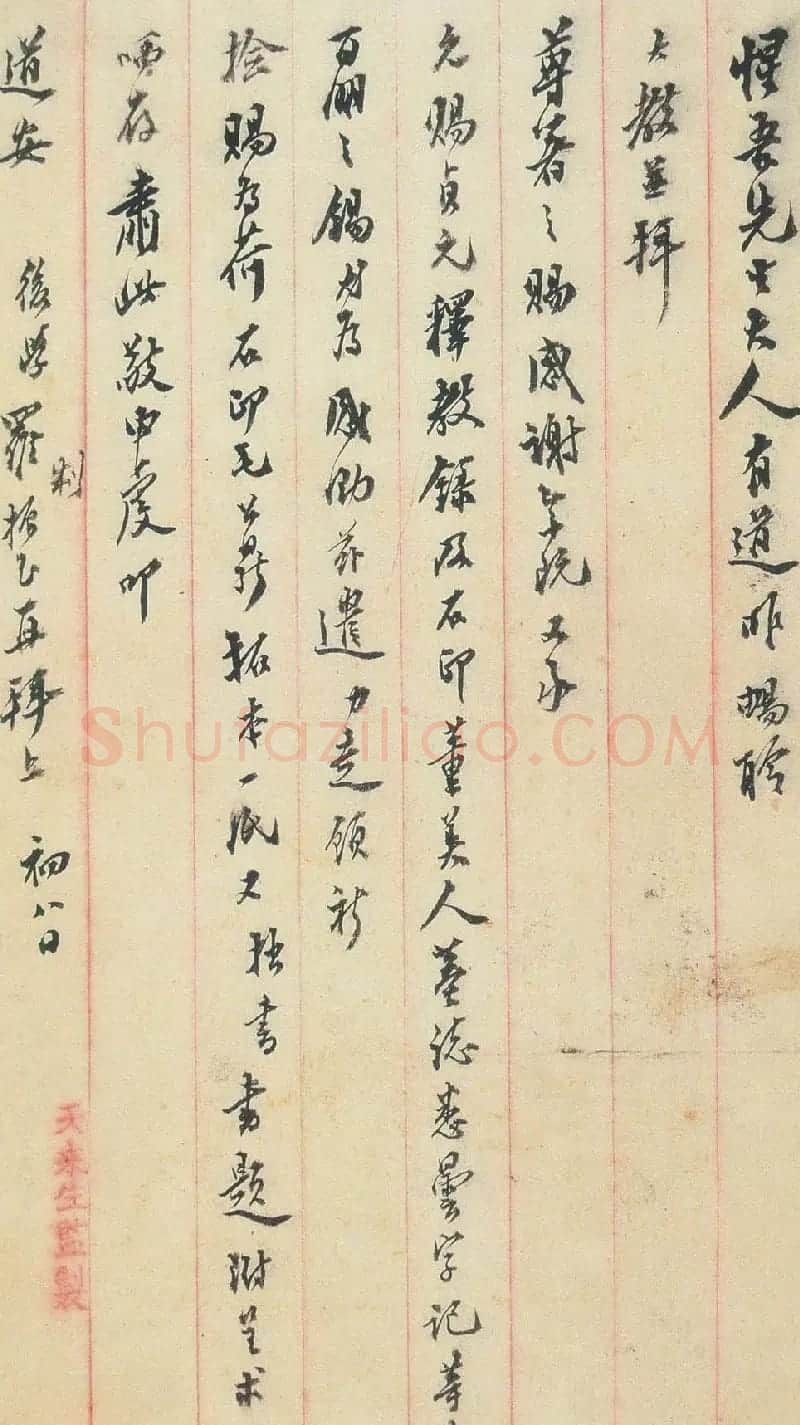 惺吾先生大人有道昨暢聆
大教並拜
尊著之賜感謝無既又承
允賜貞元釋教錄及石印董美人墓誌悉曇字記等
百朋之錫材為感助茲遣力走領祈
撿賜為荷石印毛公鼎拓本一紙又拙書書題附呈求
哂存肅此敬申虔叩
道安 後學制羅振玉再拜上 初八日
天來生監製
Shufaziliao.COM